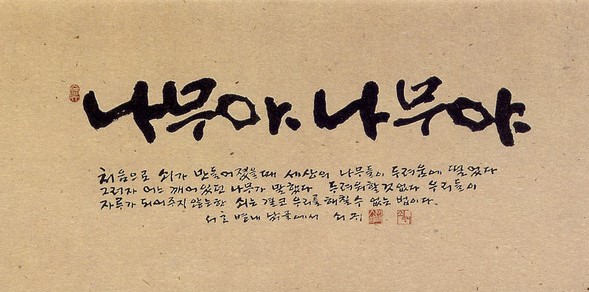 나무야 나무야
처음으로 쇠가 만들어졌을때 세상의 나무들이 두려움에 떨었다
그러자 어느 깨어있던 나무가 말했다 두려워할것없다 우리들이
자루가 되어주지 않는한 쇠는 결코 우리를 해칠수 없는 법이다.
서초 에서 쇠귀